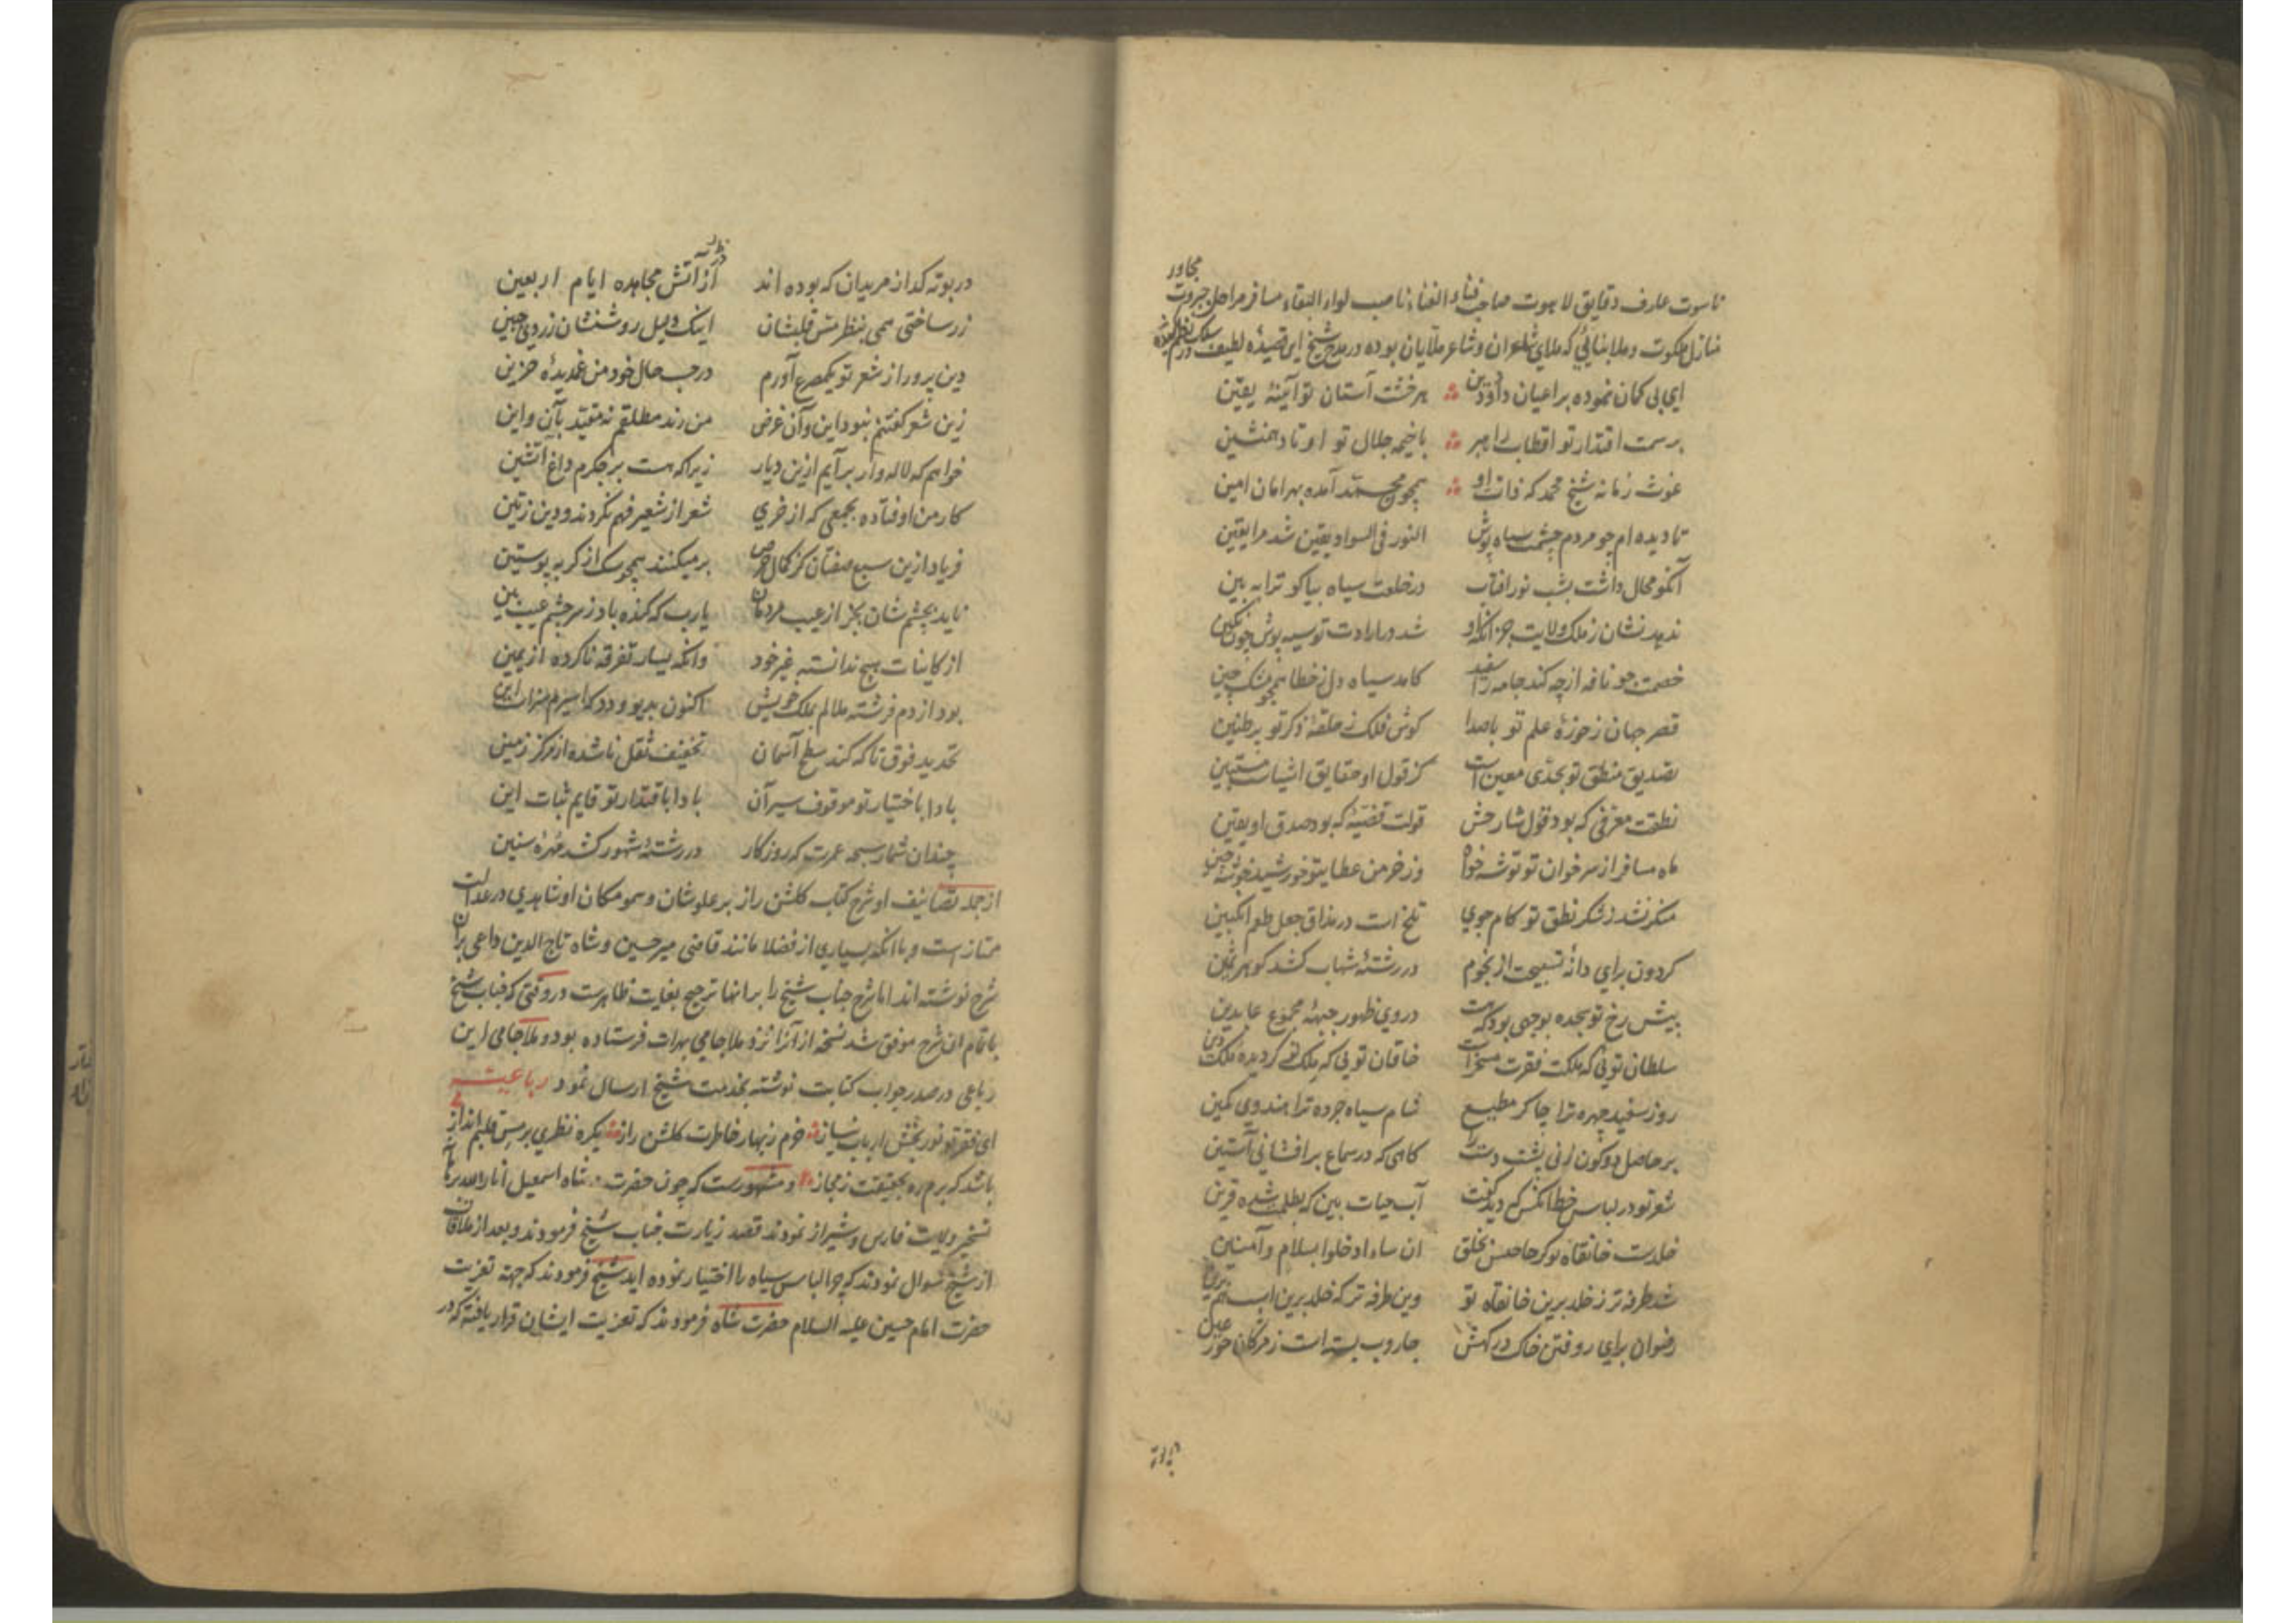 مجاور
ناسوت عارف دقایق لاهوت صاحب فناء الفناء ناصب لواء البقاء مسافر مراحل جبروت
منازل ملکوت و ملا بنائی که ملای شاعران و شاعر ملایان بوده در مدح شیخ این قصیده لطیف در سلک نظم کشیده
ای بی کمان نموده بر اعیان داد و دین هر خشت آستان تو آیینهٔ یقین
بر سمت اقتدار تو اقطاب راهبر با خیمه جلال تو اوتاد همنشین
غوث زمانه شیخ محمد که ذات او همچون محمد آمده بهر امان امین
تا دیده‌ام چو مردم چشمت سیاه پوش النور فی السواد یقین شد مرا یقین
آنکو محال داشت بشب نور افتاب در خلعت سیاه بیا کو ترا به بین
ندهد نشان ز ملک ولایت جز آنکه او شد در ارادت تو سیه پوش چون نکین
خصمت چو نافه از چه کند جامه را سفید کامد سیاه دل ز خطا همچو مشک چین
قصر جهان ز حوزهٔ علم تو با صدا کوش فلک ز حلقهٔ ذکر تو پر طنین
تصدیق منطق تو بحدی معین است کز قول او حقایق اشیاست مستبین
نطقت معرفی که بود قول شارحش قولت قضیهٔ که بود صدق او یقین
ماه مسافر از سر خوان تو توشه خواه وز خرمن عطای تو خورشید خوشه چین
منکر نشد ز شکر نطق تو کام جوی تلخ است در مذاق جعل طعم انکبین
کردون برای دانهٔ تسبیحت از نجوم در رشتهٔ شهاب کشد کوهر ثمین
پیش رخ تو سجده بوجهی بود که هست در وی ظهور جبههٔ مجموع عابدین
سلطان تویی که ملکت فقرت مسخر است خاقان تویی که
روز سفید چهره ترا چاکر مطیع شام سیاه جرده ترا هندوی کمین
بر حاصل دو کون زنی پشت دست را کاهی که در سماع برافشانی آستین
شعر تو در لباس خط آنکس که دید گفت آب حیات بین که بظلمت شده قرین
خلدست خانقاه تو کز حسن خلق ان ساء ادخلوا بسلام و آمنین
شد طرفه‌تر ز خلد برین خانقاه تو وین طرفه‌تر که خلد برین است هم برین
رضوان برای روفتن خاک درکهش جاروب بسته است ز مژکان حور عین
در بوته کداز مریدان که بوده‌اند از آتش مجاهده ایام اربعین
زر ساختی همی بنظر مس قلبشان اینک دلیل روشنشان زردی جبین
دین پرور از شعر تو یکمصرع آورم در حسب حال خود من غمدیدهٔ حزین
زین شعر گفتنم نبود این و آن غرض من رند مطلقم نه مقید بآن و این
خواهم که لاله‌وار بر آیم ازین دیار زیرا که هست بر جکرم داغ آتشین
کار من اوفتاده بجمعی که از خری شعر از شعیر فهم نکردند و دین ز تین
فریاد ازین سبع صفتان کز کمال حرص بر میکنند همچو سک از کربه پوستین
ناید بچشم شان بجز از عیب مردمان یارب که کنده باد ز سر چشم عیب بین
از کاینات هیچ ندانسته غیر خود وانکه یسار تفرقه ناکرده از یمین
بود از دم فرشته ملالم بملک خویش اکنون بدیو و دد
تحدید فوق تا که کند سطح آسمان تخفیف ثقل تا شده از مرکز زمین
بادا باختیار تو موقوف سیر آن بادا باقتدار تو قایم ثبات این
چندان شمار سبحه عمرت که روزکار در رشتهٔ شهور کشد مهرهٔ سنین
از جمله تصانیف او شرح کتاب کلشن راز بر علو شان و سمو مکان او شاهدی در عدالت
ممتاز است و با انکه بسیاری از فضلا مانند قاضی میر حسین و شاه تاج الدین داعی بران
شرح نوشته‌اند اما شرح جناب شیخ را بر انها ترجیح بغایت ظاهرست در وقتی که جناب شیخ
باتمام ان شرح موفق شد نسخه از آنرا نزد ملا جامی بهرات فرستاده بود و ملا جامی این
رباعی در صدر جواب کتابت نوشته بخدمت شیخ ارسال نمود رباعیه
ای فقر تو نور بخش ارباب نیاز خرم ز بهار خاطرت کلشن راز یکره نظری بر مس قلبم انداز
باشد که برم ره بحقیقت ز مجاز و مشهورست که چون حضرت شاه اسمعیل انار الله برهانه
تسخیر ولایت فارس و شیراز نمودند قصد زیارت جناب شیخ فرمودند و بعد از ملاقات
از شیخ سوال نمودند که چرا لباس سیاه را اختیار نموده‌اید شیخ فرمودند که جهة تعزیت
حضرت امام حسین علیه السلام حضرت شاه فرمودند که تعزیت ایشان قرار یافته که در